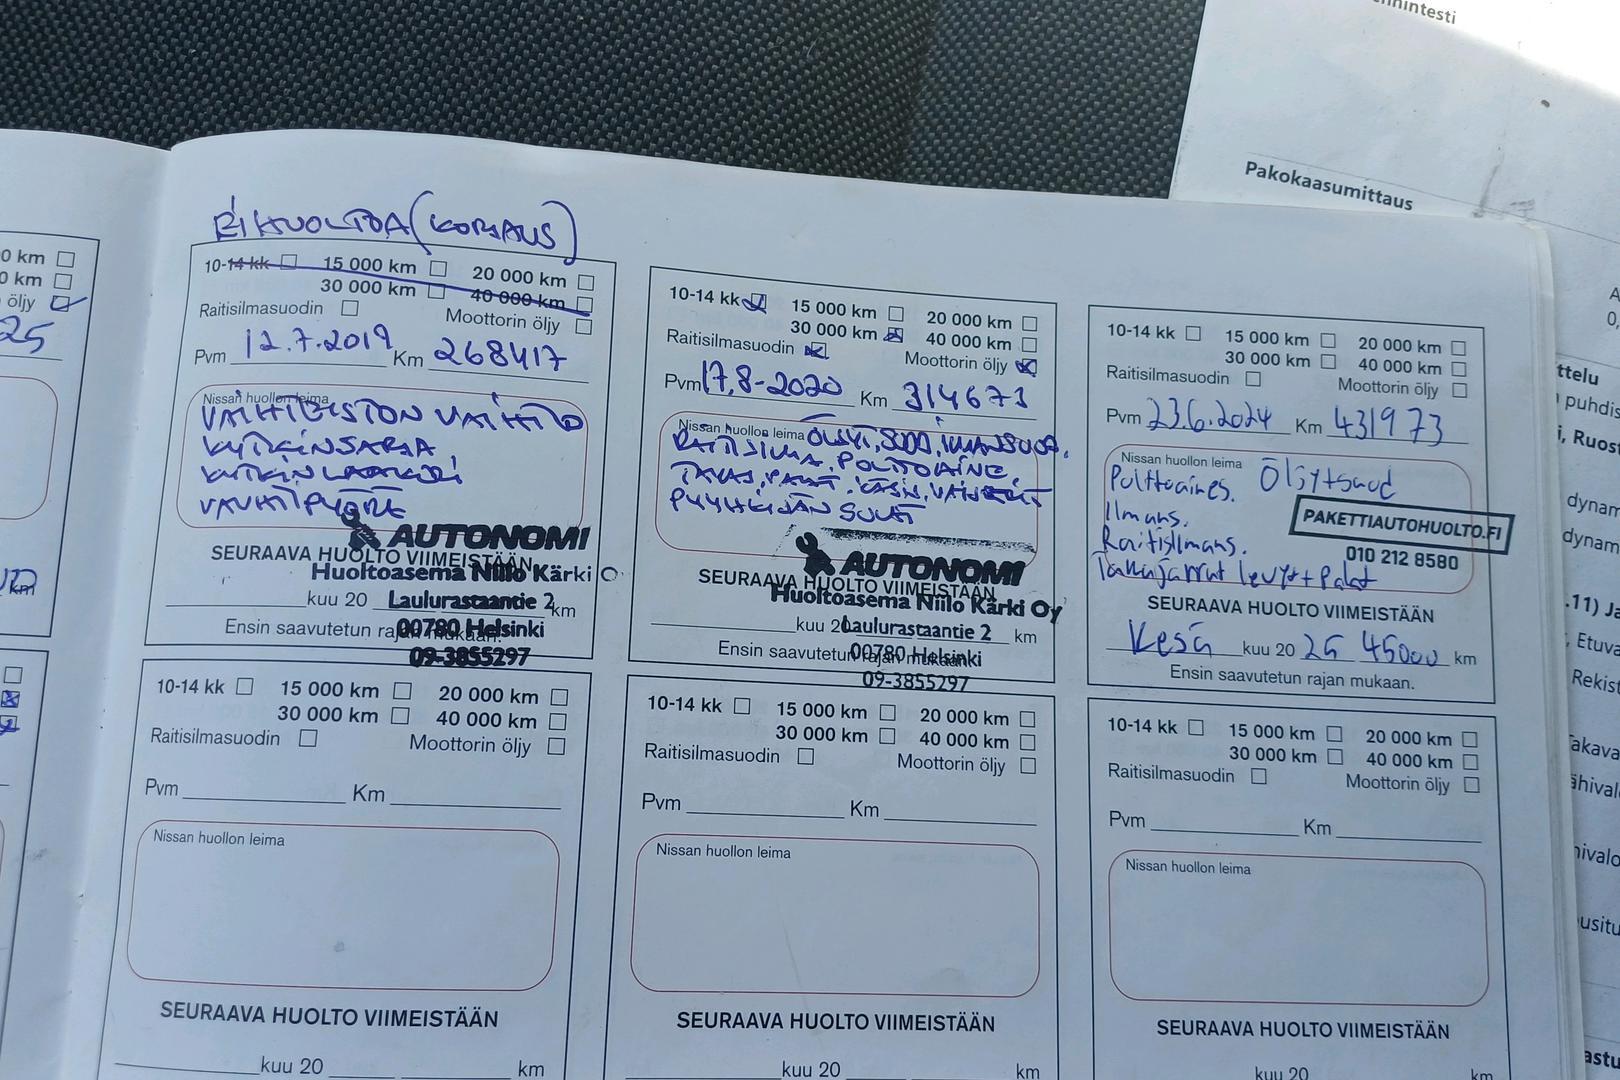 nnintesti
Pakokaasumittaus
EI HUOLTOA (KORJAUS)
0 km
0 km
öljy
25
km
10-14 kk 15 000 km 20 000 km
30 000 km 40 000 km
Raitisilmasuodin Moottorin öljy
Pvm 12.7.2019 Km 268417
Nissan huollon leima
VAIHTEISTON VAIHTO
KYTKINSARJA
KYTKINLAAKERI
VAUHTIPYÖRÄ
AUTONOMI
SEURAAVA HUOLTO VIIMEISTÄÄN
Huoltoasema Niilo Kärki O
kuu 20 km
Laulurastaantie 2
Ensin saavutetun rajan mukaan.
00780 Helsinki
09-3855297
10-14 kk 15 000 km 20 000 km
30 000 km 40 000 km
Raitisilmasuodin Moottorin öljy
Pvm 17.8-2020 Km 314673
Nissan huollon leima ÖLJYT, SUOD, ILMANSUOD,
RAITISILMA, POLTTOAINE,
TAKAS. PALAT. KÄSIN. VAIJERIT
PYYHKIJÄN SULAT
AUTONOMI
SEURAAVA HUOLTO VIIMEISTÄÄN
Huoltoasema Niilo Kärki Oy
kuu 20 km
Laulurastaantie 2
Ensin saavutetun rajan mukaan.
00780 Helsinki
09-3855297
10-14 kk 15 000 km 20 000 km
30 000 km 40 000 km
Raitisilmasuodin Moottorin öljy
Pvm 23.6.2024 Km 431973
Nissan huollon leima Öljyt+suod
Polttoaines.
Ilmans.
Raitisilmans.
Takajarrut levyt+palat
PAKETTIAUTOHUOLTO.FI
010 212 8580
SEURAAVA HUOLTO VIIMEISTÄÄN
Kesä kuu 20 25 45000 km
Ensin saavutetun rajan mukaan.
10-14 kk 15 000 km 20 000 km
30 000 km 40 000 km
Raitisilmasuodin Moottorin öljy
Pvm Km
Nissan huollon leima
SEURAAVA HUOLTO VIIMEISTÄÄN
kuu 20 km
10-14 kk 15 000 km 20 000 km
30 000 km 40 000 km
Raitisilmasuodin Moottorin öljy
Pvm Km
Nissan huollon leima
SEURAAVA HUOLTO VIIMEISTÄÄN
kuu 20 km
10-14 kk 15 000 km 20 000 km
30 000 km 40 000 km
Raitisilmasuodin Moottorin öljy
Pvm Km
Nissan huollon leima
SEURAAVA HUOLTO VIIMEISTÄÄN
kuu 20 km
ttelu
puhdis
i, Ruost
dynam
dynam
.11) Ja
, Etuva
Rekist
Takava
ähival
nivalo
usitu
astu